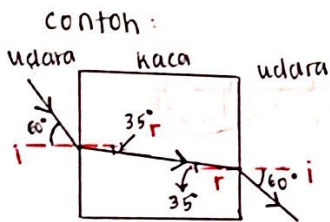 contoh:
udara kaca udara
60° i 35° r
35° r 60° i